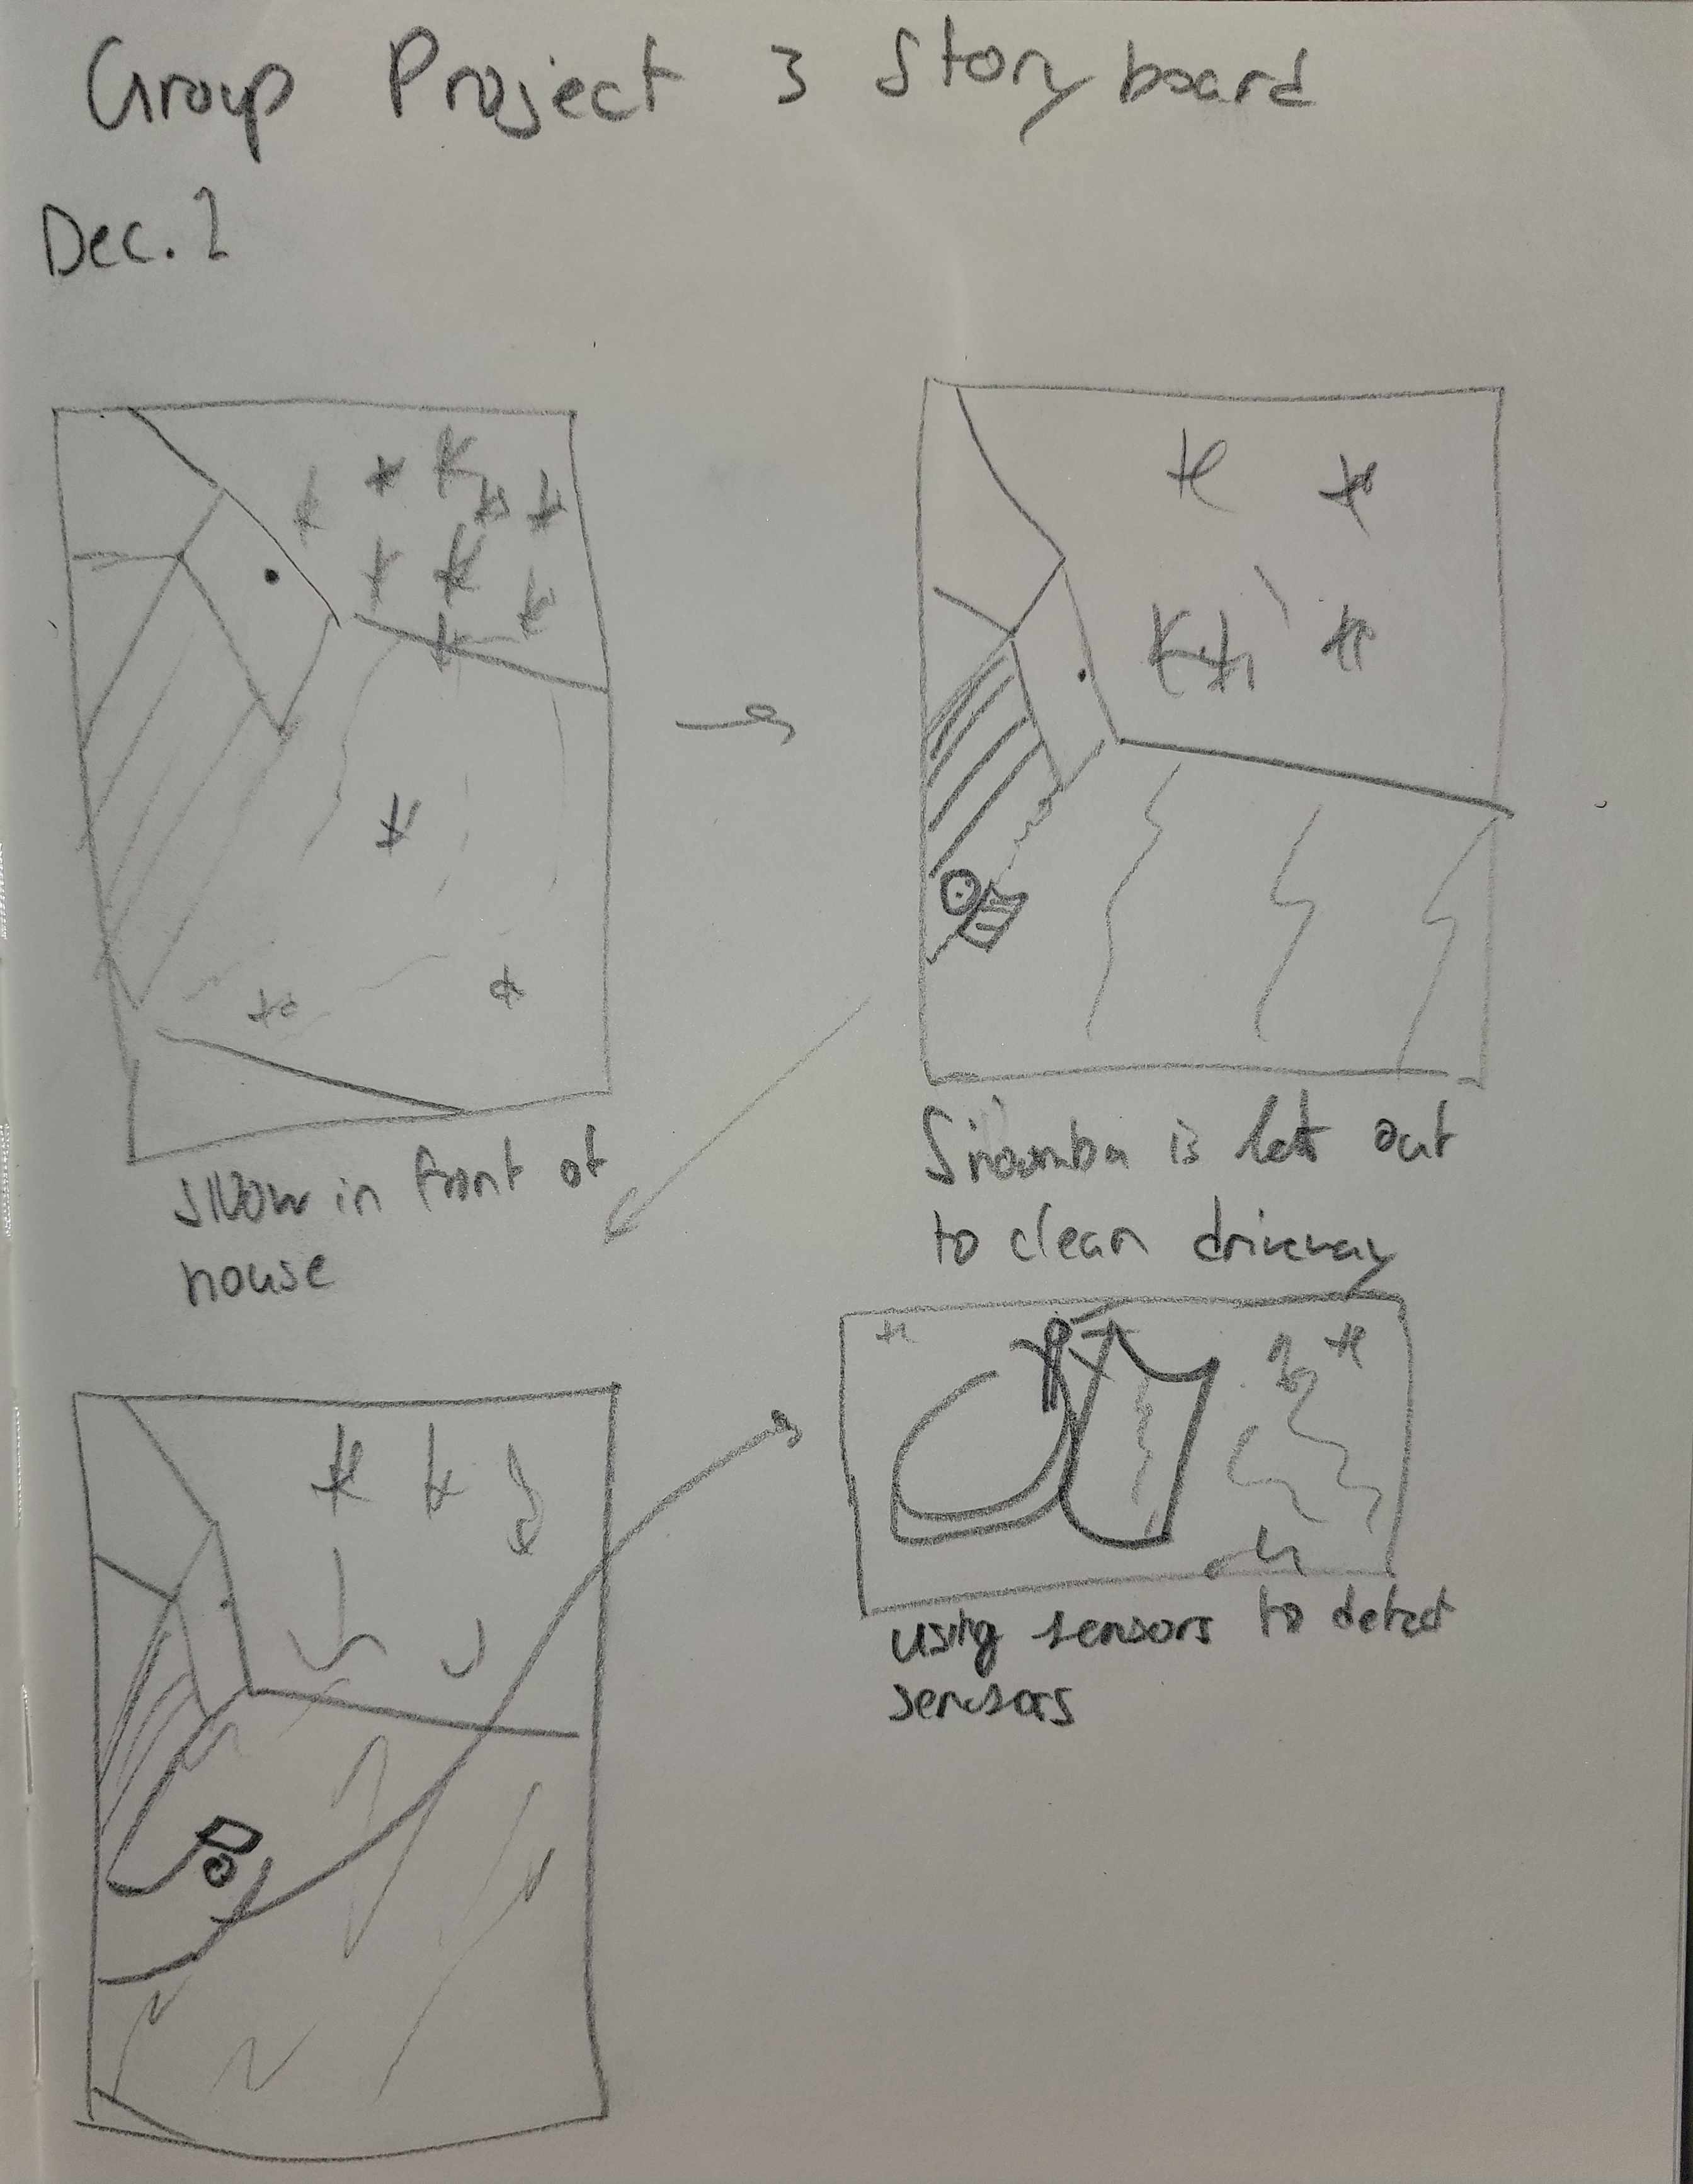 Group Project 3 Storyboard
Dec. 2
snow in front of
house
Snoomba is let out
to clean driveway
using sensors to detect
sensors